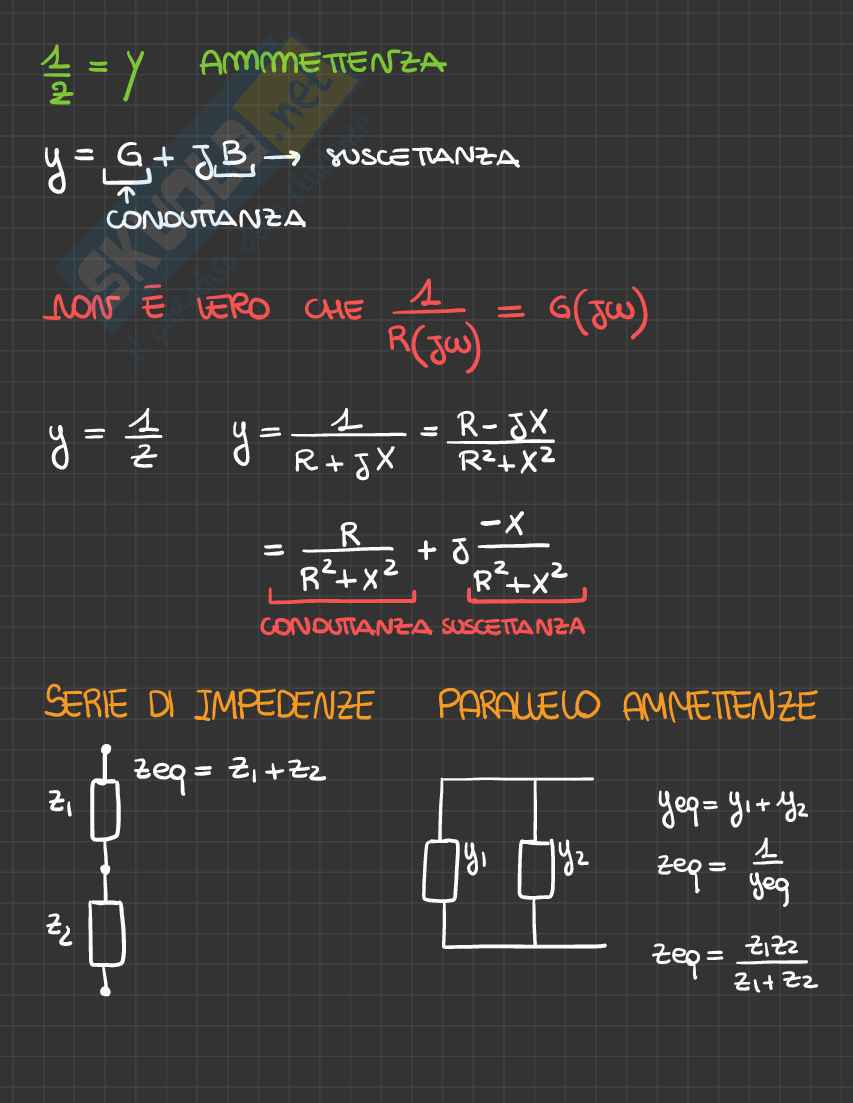 1/z = y AMMMETTENZA
y = G + JB → SUSCETTANZA
↑
CONDUTTANZA
NON È VERO CHE 1/R(Jω) = G(Jω)
y = 1/z y = 1/(R + JX) = (R - JX)/(R² + X²)
= R/(R² + X²) + J -X/(R² + X²)
CONDUTTANZA SUSCETTANZA
SERIE DI IMPEDENZE PARALLELO AMMETTENZE
z1
zeq = z1 + z2
z2
y1 y2
yeq = y1 + y2
zeq = 1/yeq
zeq = z1z2/(z1 + z2)
SKUOLA.net